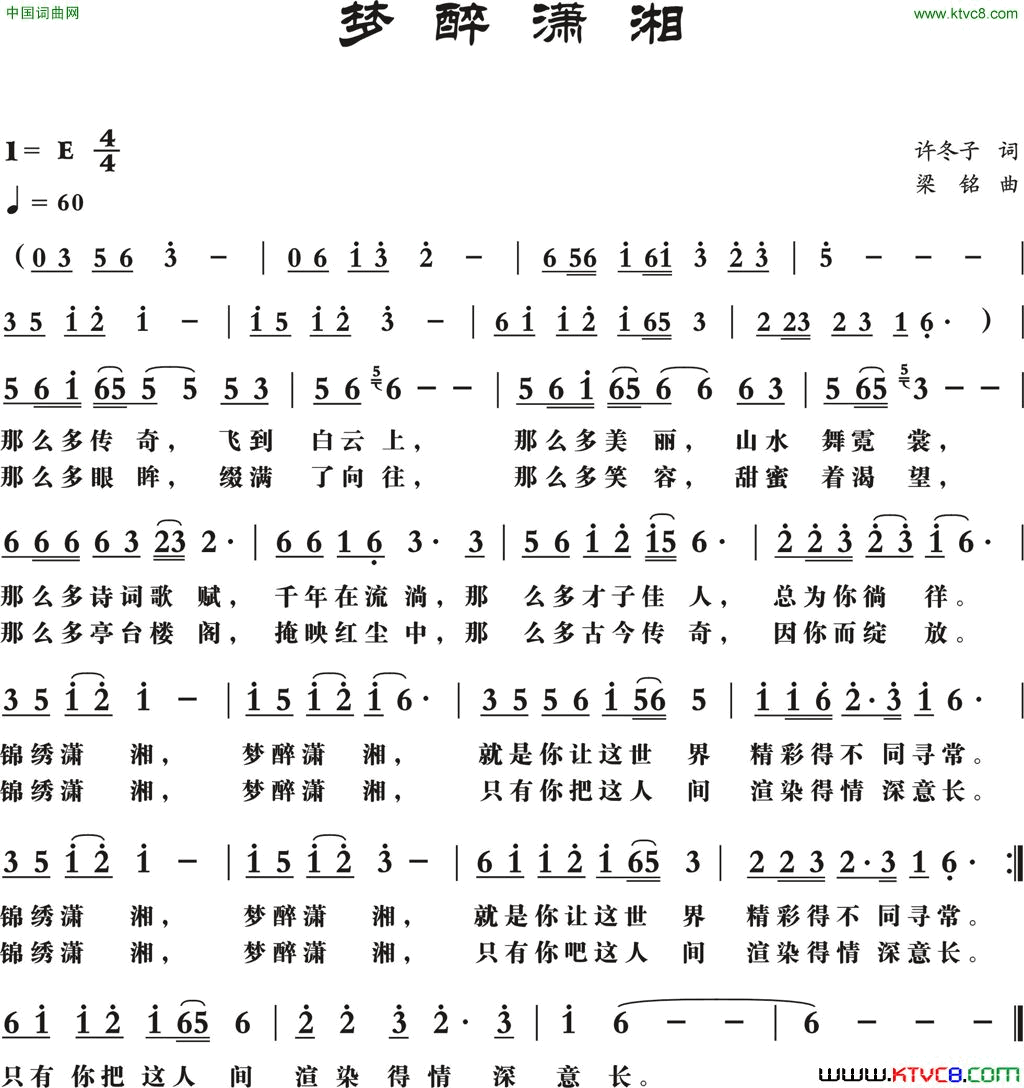 中国词曲网
www.ktvc8.com
梦醉潇湘
1= E 4/4
许冬子 词
♩= 60
梁 铭 曲
( 0 3 5 6 3̇ - | 0 6 1̇ 3̇ 2̇ - | 6 56 1̇ 61̇ 3̇ 2̇ 3̇ | 5̇ - - - |
3 5 1̇ 2̇ 1̇ - | 1̇ 5 1̇ 2̇ 3̇ - | 6 1̇ 1̇ 2̇ 1̇ 65 3 | 2 23 2 3 1 6̣· ) |
5 6 1̇ 65 5 5 5 3 | 5 6 5 6 - - | 5 6 1̇ 65 6 6 6 3 | 5 65 5 3 - - |
那么多传 奇, 飞到 白云上, 那么多美 丽, 山水 舞霓 裳,
那么多眼 眸, 缀满 了向往, 那么多笑 容, 甜蜜 着渴 望,
6 6 6 6 3 23 2· | 6 6 1 6̣ 3· 3 | 5 6 1̇ 2̇ 1̇5 6· | 2̇ 2̇ 3̇ 2̇ 3̇ 1̇ 6· |
那么多诗词歌 赋, 千年在流 淌,那 么多才子佳 人, 总为你徜 徉。
那么多亭台楼 阁, 掩映红尘 中,那 么多古今传 奇, 因你而绽 放。
3 5 1̇ 2̇ 1̇ - | 1̇ 5 1̇ 2̇ 1̇ 6· | 3 5 5 6 1̇ 56 5 | 1̇ 1̇ 6 2̇· 3̇ 1̇ 6· |
锦绣潇 湘, 梦醉潇 湘, 就是你让这世 界 精彩得不 同寻常。
锦绣潇 湘, 梦醉潇 湘, 只有你把这人 间 渲染得情 深意长。
3 5 1̇ 2̇ 1̇ - | 1̇ 5 1̇ 2̇ 3̇ - | 6 1̇ 1̇ 2̇ 1̇ 65 3 | 2 2 3 2· 3 1 6̣· :‖
锦绣潇 湘, 梦醉潇 湘, 就是你让这世 界 精彩得不 同寻常。
锦绣潇 湘, 梦醉潇 湘, 只有你吧这人 间 渲染得情 深意长。
6 1̇ 1̇ 2̇ 1̇ 65 6 | 2̇ 2̇ 3̇ 2̇· 3̇ | 1̇ 6 - - | 6 - - - ‖
只有 你把 这人 间 渲染 得情 深 意 长。
WWW.KTVC8.COM